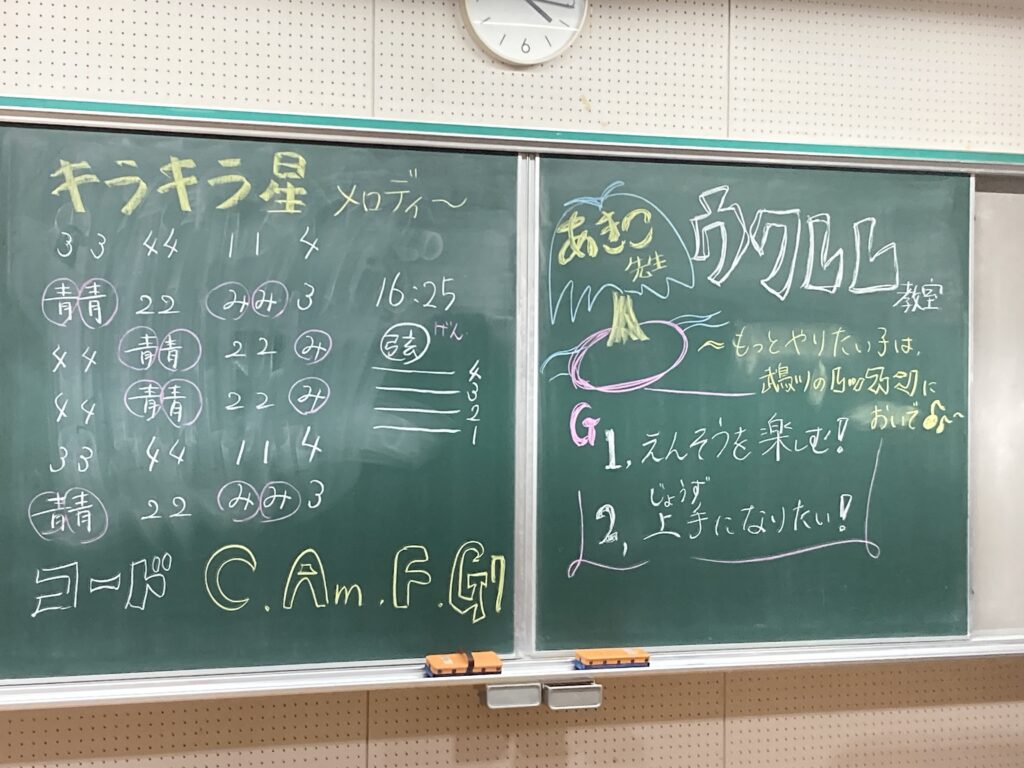 6
キラキラ星 メロディ〜
3 3 4 4 1 1 4
青青 2 2 みみ 3
4 4 青青 2 2 み
4 4 青青 2 2 み
3 3 4 4 1 1 4
青青 2 2 みみ 3
16:25
弦 げん
4
3
2
1
コード C.Am.F.G7
あきつ
先生
ウクレレ
教室
〜もっとやりたい子は、
の
に
おいで♪〜
G
1, えんそうを楽しむ!
じょうず
2, 上手になりたい!